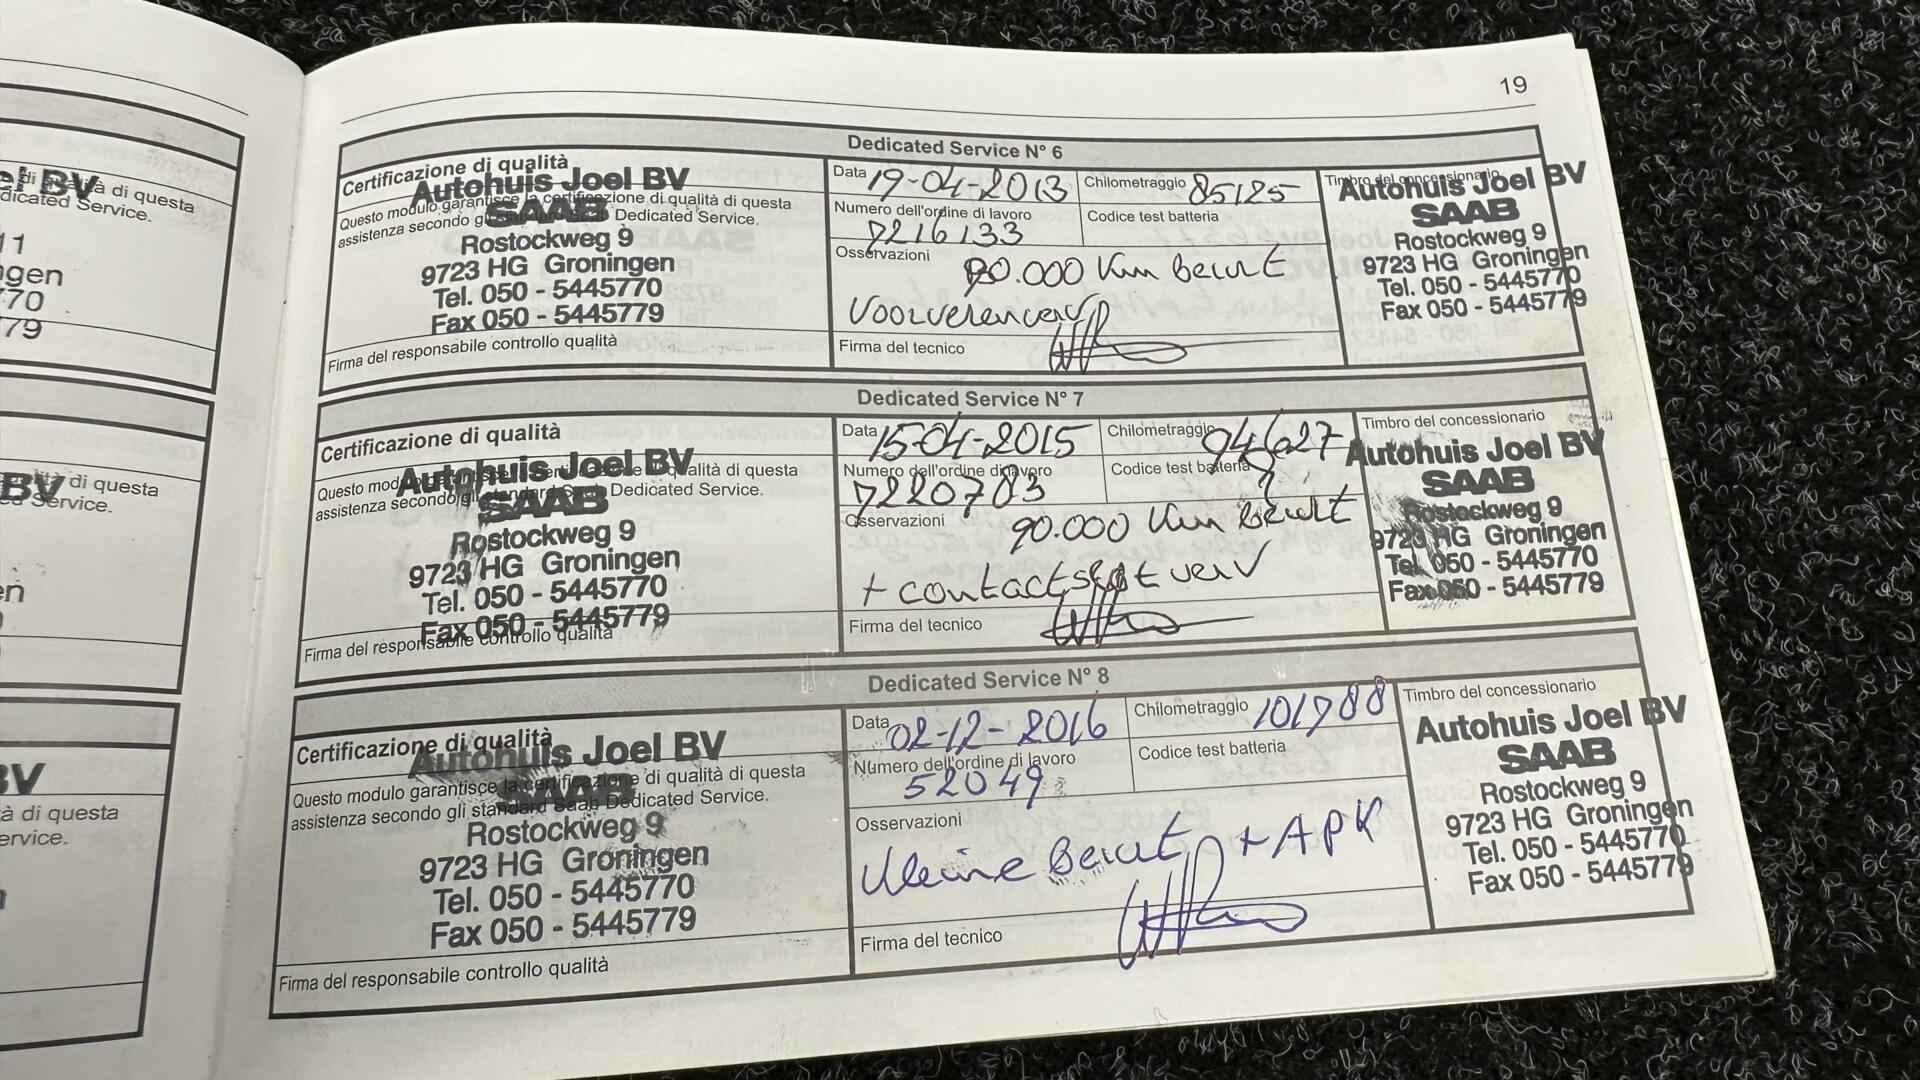 19
el BV
di di questa
dicated Service.
11
ngen
70
779
BV
di questa
Service.
en
BV
tà di questa
ervice.
Dedicated Service N° 6
Certificazione di qualità
Questo modulo garantisce la certificazione di qualità di questa
assistenza secondo gli Dedicated Service.
Autohuis Joel BV
SAAB
Rostockweg 9
9723 HG Groningen
Tel. 050 - 5445770
Fax 050 - 5445779
Firma del responsabile controllo qualità
Data 19-04-2013
Chilometraggio 85125
Numero dell'ordine di lavoro
7216133
Codice test batteria
Osservazioni
80.000 Km beurt
Voorveren verv
Firma del tecnico
Timbro del concessionario
Autohuis Joel BV
SAAB
Rostockweg 9
9723 HG Groningen
Tel. 050 - 5445770
Fax 050 - 5445779
Dedicated Service N° 7
Certificazione di qualità
Questo modulo di qualità di questa
assistenza secondo gli standard Saab Dedicated Service.
Autohuis Joel BV
SAAB
Rostockweg 9
9723 HG Groningen
Tel. 050 - 5445770
Fax 050 - 5445779
Firma del responsabile controllo qualità
Data 15-04-2015
Chilometraggio 94627
Numero dell'ordine di lavoro
7220783
Codice test batteria
Osservazioni
90.000 Km beurt
+ contactslot verv
Firma del tecnico
Timbro del concessionario
Autohuis Joel BV
SAAB
Rostockweg 9
9723 HG Groningen
Tel. 050 - 5445770
Fax 050 - 5445779
Dedicated Service N° 8
Certificazione di qualità
Questo modulo garantisce la certificazione di qualità di questa
assistenza secondo gli standard Saab Dedicated Service.
Autohuis Joel BV
SAAB
Rostockweg 9
9723 HG Groningen
Tel. 050 - 5445770
Fax 050 - 5445779
Firma del responsabile controllo qualità
Data 02-12-2016
Chilometraggio 101788
Numero dell'ordine di lavoro
52049
Codice test batteria
Osservazioni
Kleine beurt + APK
Firma del tecnico
Timbro del concessionario
Autohuis Joel BV
SAAB
Rostockweg 9
9723 HG Groningen
Tel. 050 - 5445770
Fax 050 - 5445779